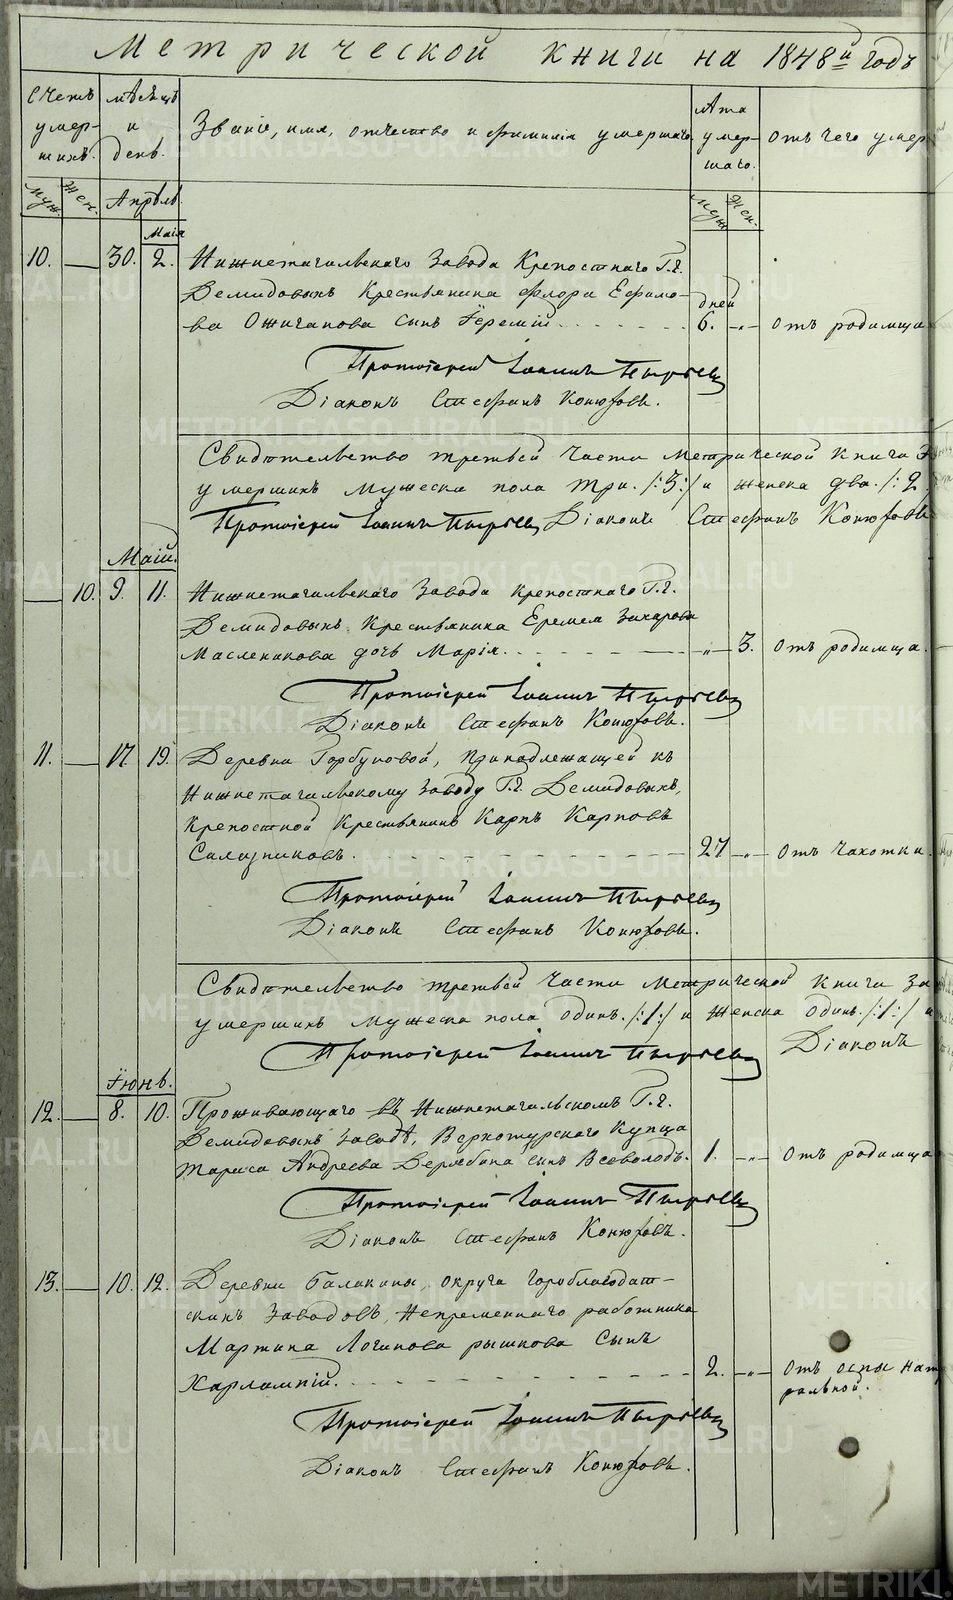 Метрической книги на 1848й годъ
Счетъ умер-шихъ. мѣсяцъ и день. Званіе, имя, отчество и фамилія умершаго. лѣта умер-шаго. отъ чего умер
муж. жен. Апрѣль. муж. жен.
Маія
10. 30. 2. Нижнетагильскаго Завода Крепостнаго Г.г.
Демидовыхъ Крестьянина Флора Ефимо- дней
ва Ожиганова сынъ Іеремій. 6. -„- отъ родимца
Протоіерей Іоаннъ Пырьевъ
Діаконъ Стефанъ Конюховъ.
Свидѣтельство третьей части метрической книги
умершихъ мужеска пола три. /:3:/ и женска два. /:2
Протоіерей Іоаннъ Пырьевъ Діаконъ Стефанъ Конюховъ
Маій.
10. 9. 11. Нижнетагильскаго Завода крепостнаго Г.г.
Демидовыхъ Крестьянина Еремея Захарова
Масленикова дочь Марія. -„- 3. отъ родимца.
Протоіерей Іоаннъ Пырьевъ
Діаконъ Стефанъ Конюховъ.
11. 17. 19. Деревни Горбуновой, принадлежащей къ
Нижнетагильскому Заводу Г.г. Демидовыхъ,
крепостной Крестьянинъ Карпъ Карповъ
Салазниковъ. 27 -„- отъ чахотки.
Протоіерей Іоаннъ Пырьевъ
Діаконъ Стефанъ Конюховъ.
Свидѣтельство третьей части метрической книги За
умершихъ мужеска пола одинъ. /:1:/ и женска одинъ. /:1:/ и
Протоіерей Іоаннъ Пырьевъ Діаконъ
Іюнь.
12. 8. 10. Проживающаго въ Нижнетагильскомъ Г.г.
Демидовыхъ Заводѣ, Верхотурскаго Купца
Тараса Андреева Дерябина сынъ Всеволодъ. 1. -„- отъ родимца
Протоіерей Іоаннъ Пырьевъ
Діаконъ Стефанъ Конюховъ.
13. 10. 12. Деревни Балакины, округа Гороблагодат-
скихъ Заводовъ, Непременнаго работника
Мартина Логинова рышкова Сынъ
Харлампій. 2. -„- отъ оспы нат
ральной.
Протоіерей Іоаннъ Пырьевъ
Діаконъ Стефанъ Конюховъ.
METRIKI.GASO-URAL.RU